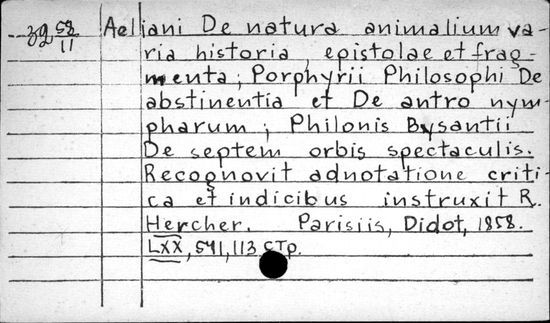 39 58/11 Aeliani De natura animalium va-
ria historia, epistolae et frag-
menta; Porphyrii Philosophi De
abstinentia et De antro nym-
pharum; Philonis Bysantii
De septem orbis spectaculis.
Recognovit adnotatione criti-
ca et indicibus instruxit R.
Hercher. Parisiis, Didot, 1858.
LXX, 541, 113 стр.